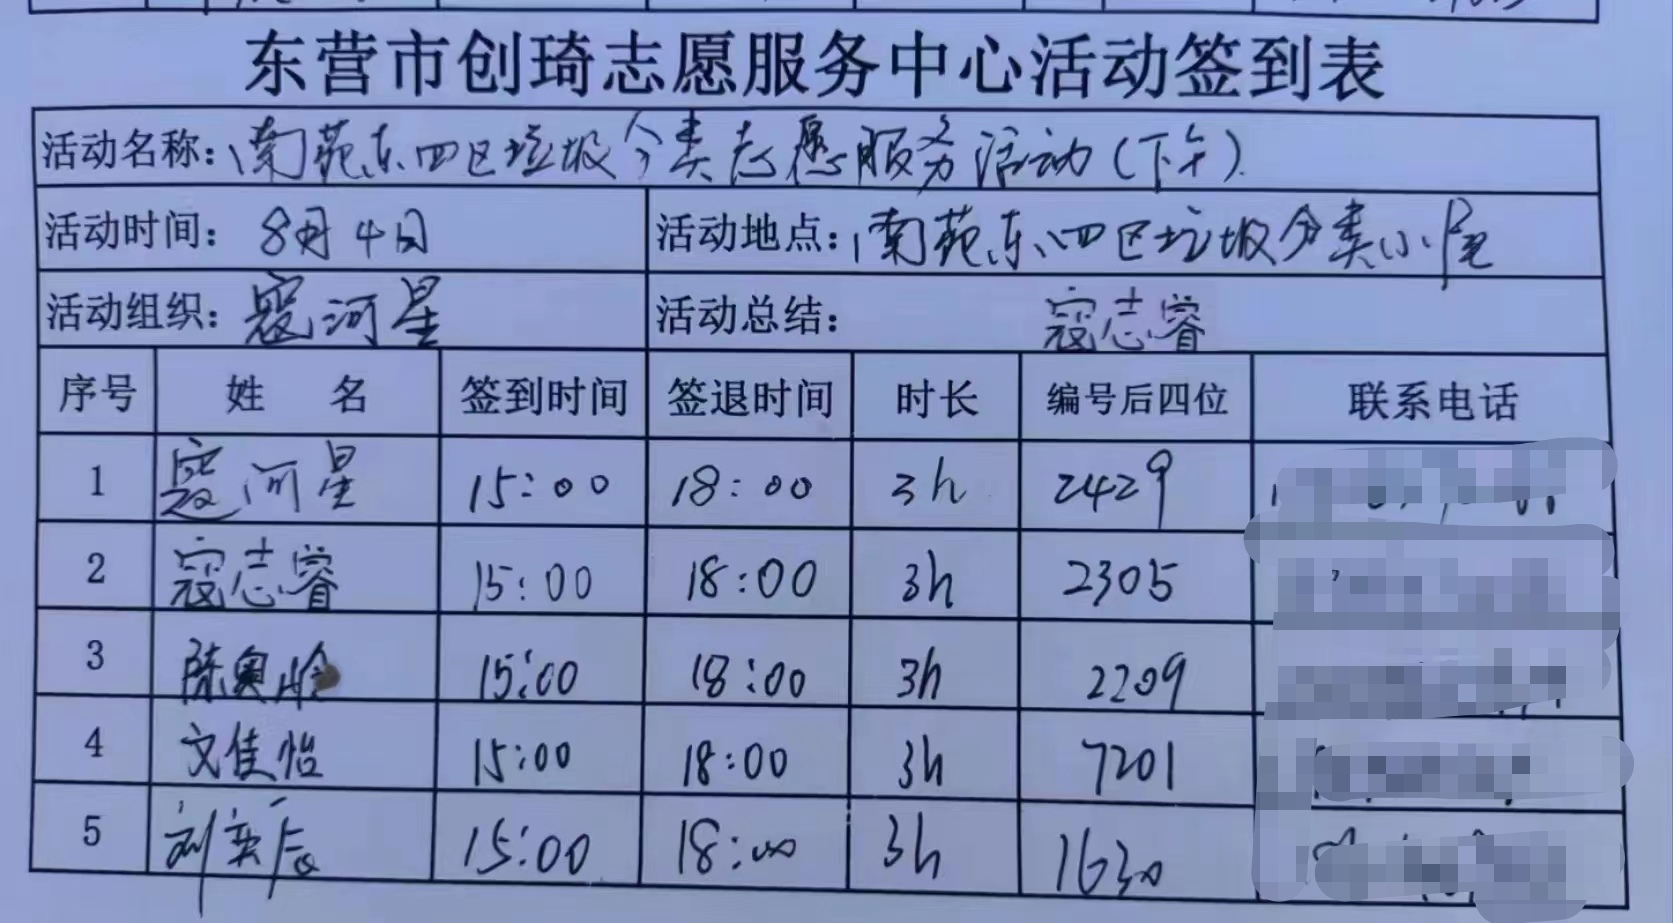 东营市创琦志愿服务中心活动签到表
活动名称：南苑东四区垃圾分类志愿服务活动(下午).
活动时间：8月4日 活动地点：南苑东四区垃圾分类小屋
活动组织：寇河星 活动总结：寇志睿
序号 姓 名 签到时间 签退时间 时长 编号后四位 联系电话
1 寇河星 15:00 18:00 3h 2429
2 寇志睿 15:00 18:00 3h 2305
3 陈奥 15:00 18:00 3h 2209
4 文佳怡 15:00 18:00 3h 7201
5 刘奕辰 15:00 18:00 3h 1630